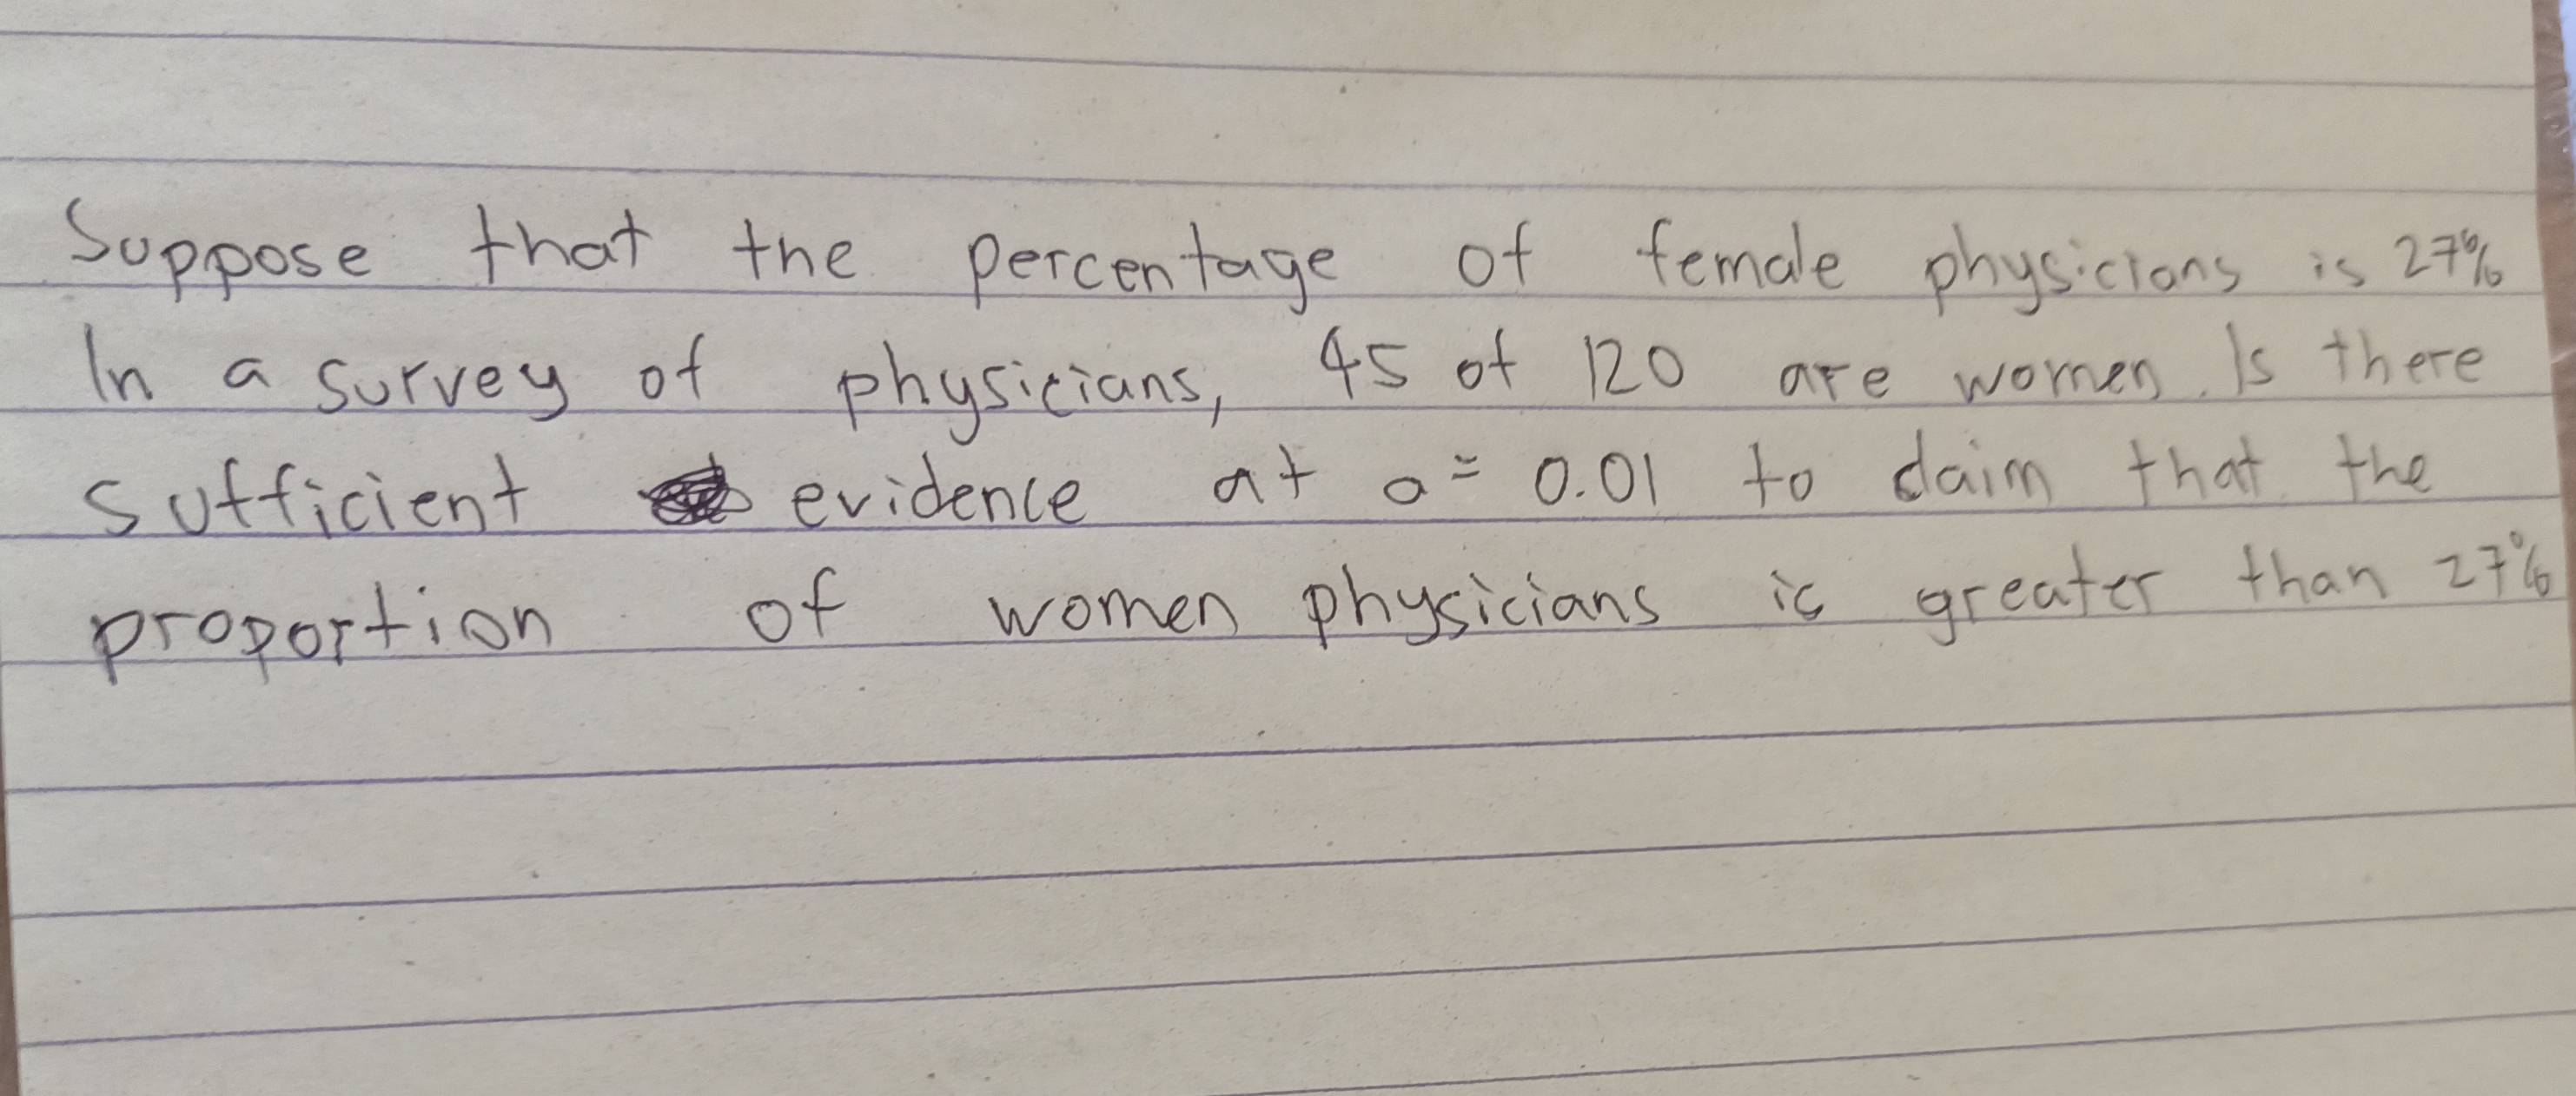 Suppose that the percentage of female physicians is 27%
In a survey of physicians, 45 of 120 are women. Is there
sufficient evidence at a = 0.01 to claim that the
proportion of women physicians is greater than 27%